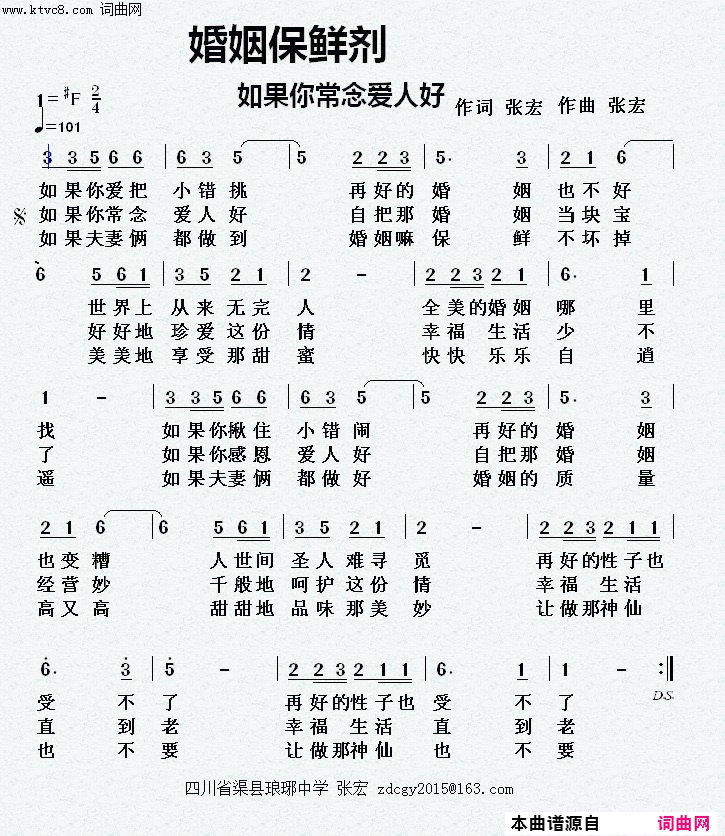 www.ktvc8.com 词曲网
婚姻保鲜剂
如果你常念爱人好
作词 张宏 作曲 张宏
1=#F 2/4
♩=101
3 3 5 6 6 | 6 3 5 | 5 2 2 3 | 5. 3 | 2 1 6 |
如果你爱把 小错挑 再好的 婚 姻 也不好
如果你常念 爱人好 自把那 婚 姻 当块宝
如果夫妻俩 都做到 婚姻嘛 保 鲜 不坏掉
6 5 6 1 | 3 5 2 1 | 2 - | 2 2 3 2 1 | 6. 1 |
世界上 从来无完 人 全美的婚姻 哪 里
好好地 珍爱这份 情 幸福 生活 少 不
美美地 享受那甜 蜜 快快 乐乐 自 逍
1 - | 3 3 5 6 6 | 6 3 5 | 5 2 2 3 | 5. 3 |
找 如果你揪住 小错闹 再好的 婚 姻
了 如果你感恩 爱人好 自把那 婚 姻
遥 如果夫妻俩 都做好 婚姻的 质 量
2 1 6 | 6 5 6 1 | 3 5 2 1 | 2 - | 2 2 3 2 1 1 |
也变糟 人世间 圣人难寻 觅 再好的性子也
经营妙 千般地 呵护这份 情 幸福 生活
高又高 甜甜地 品味那美 妙 让做那神仙
6. 3 | 5 - | 2 2 3 2 1 1 | 6. 1 | 1 - :||
D.S.
受 不 了 再好的性子也 受 不 了
直 到 老 幸福 生活 直 到 老
也 不 要 让做那神仙 也 不 要
四川省渠县琅琊中学 张宏 zdcgy2015@163.com
本曲谱源自 词曲网